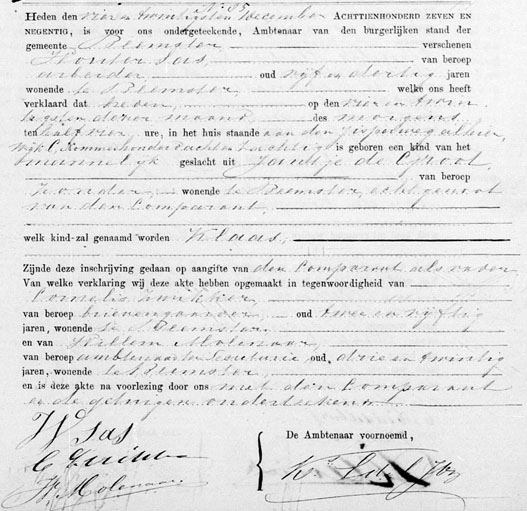 Heden den vier en twintigsten December ACHTTIENHONDERD ZEVEN EN
NEGENTIG, is voor ons ondergeteekende, Ambtenaar van den burgerlijken stand der
gemeente Beemster verschenen
Wouter Sas, van beroep
arbeider, oud vijf en dertig jaren
wonende te Beemster, welke ons heeft
verklaard dat heden, op den vier en twin
tigsten dezer maand, des morgens
ten half vier, ure, in het huis staande aan den Jisperweg alhier,
wijk C nommer honderd acht en tachtig is geboren een kind van het
mannelijk geslacht uit Jantje de Groot,
van beroep
zonder, wonende te Beemster, echtgenoot
van den Comparant,
welk kind zal genaamd worden Klaas,
Zijnde deze inschrijving gedaan op aangifte van den Comparant als vader
Van welke verklaring wij deze akte hebben opgemaakt in tegenwoordigheid van
Cornelis
van beroep brievengaarder, oud twee en vijftig
jaren, wonende te Beemster
en van Willem Molenaar,
van beroep ambtenaar ter secretarie oud, drie en twintig
jaren, wonende te Beemster
en is deze akte na voorlezing door ons met den Comparant
en de getuigen onderteekend.
W Sas
De Ambtenaar voornoemd,
C
W. Molenaar
K